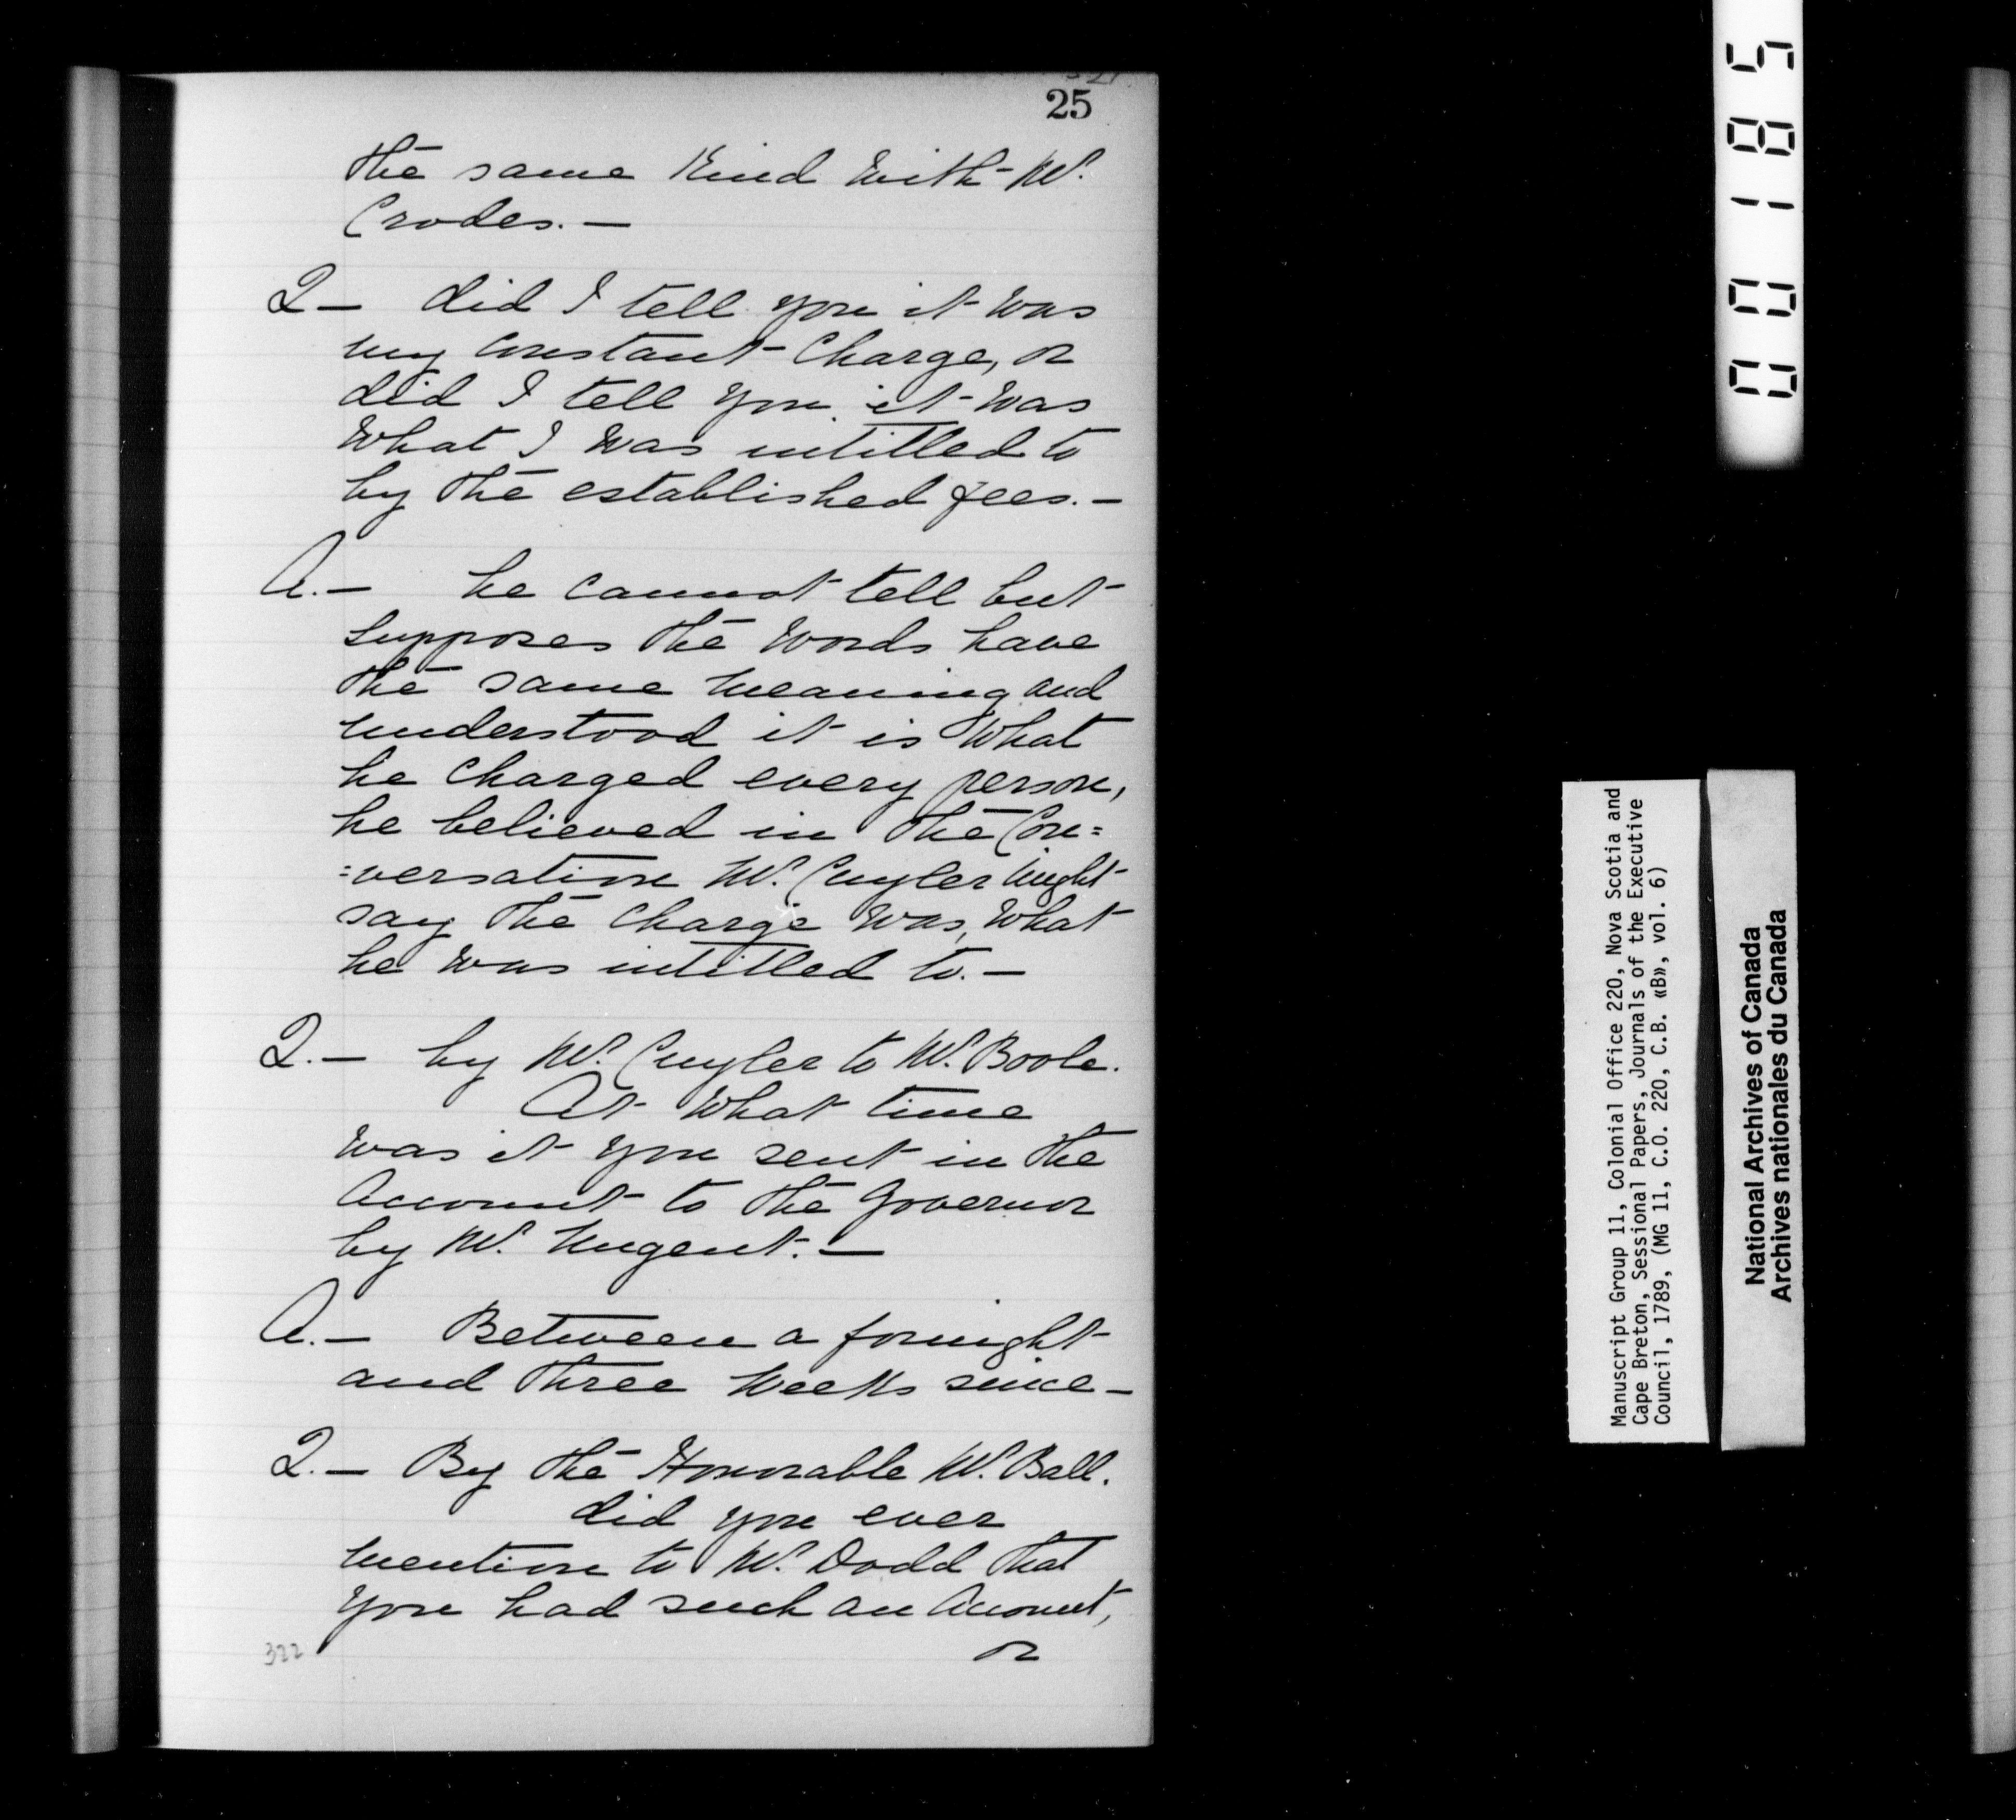 25
the same Kind with Mr.
Crodes. —
Q — did I tell you it was
my constant Charge, or
did I tell you it was
What I was intitled to
by the established fees. —
A. — he cannot tell but
supposes the words have
the same meaning and
understood it is What
he charged every person,
he believed in the Con=
=versation Mr. Cuyler might
say the charge was, What
he was intitled to. —
Q. — by Mr. Cuyler to Mr. Boole.
At What time
was it you sent in the
Account to the Governor
by Mr. Nugent. —
A. — Between a fornight
and three Weeks since —
Q. — By the Honorable Mr. Ball.
did you ever
mention to Mr. Dodd that
you had such an Account,
or
322
00185
Manuscript Group 11, Colonial Office 220, Nova Scotia and
Cape Breton, Sessional Papers, Journals of the Executive
Council, 1789, (MG 11, C.O. 220, C.B. «B», vol. 6)
National Archives of Canada
Archives nationales du Canada